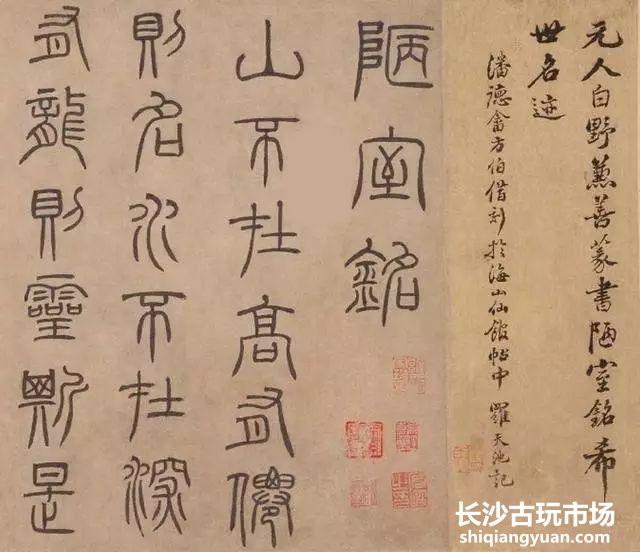 元人白野兼善篆書陋室銘希
世名迹
潘德畬方伯借刻於海山仙館帖中 羅天池記
陋室銘
山不在高有僊
則名水不在深
有龍則靈斯是
长沙古玩市场
shiqiangyuan.com